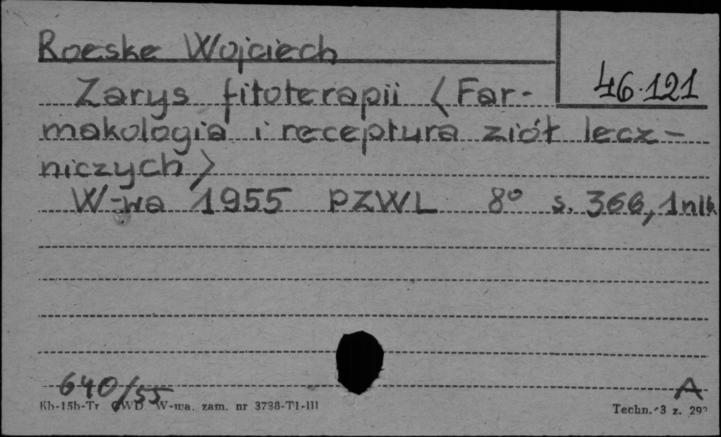 Roeske Wojciech
46.121
Zarys fitoterapii (Far-
makologia i receptura ziół lecz-
niczych)
W-wa 1955 PZWL 8° s. 366, 1 nlb
640/55
A
Kh-15b-Tr CWD W-wa. zam. nr 3798-T1-III
Techn. 3 z.